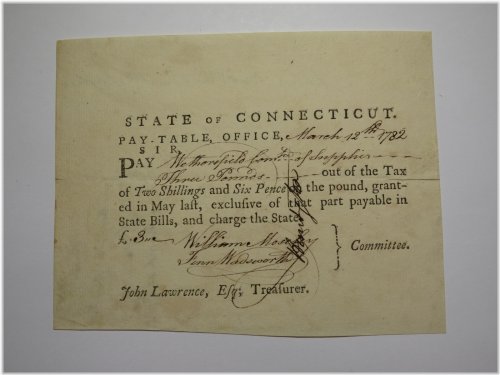 STATE OF CONNECTICUT.
PAY-TABLE, OFFICE, March 12th 1782
SIR,
PAY Wethersfield Comtte of Supplies
Three Pounds out of the Tax
of Two Shillings and Six Pence the pound, grant-
ed in May laſt, excluſive of that part payable in
State Bills, and charge the State
William Moseley
Fenn Wadsworth } Committee.
John Lawrence, Eſq; Treaſurer.